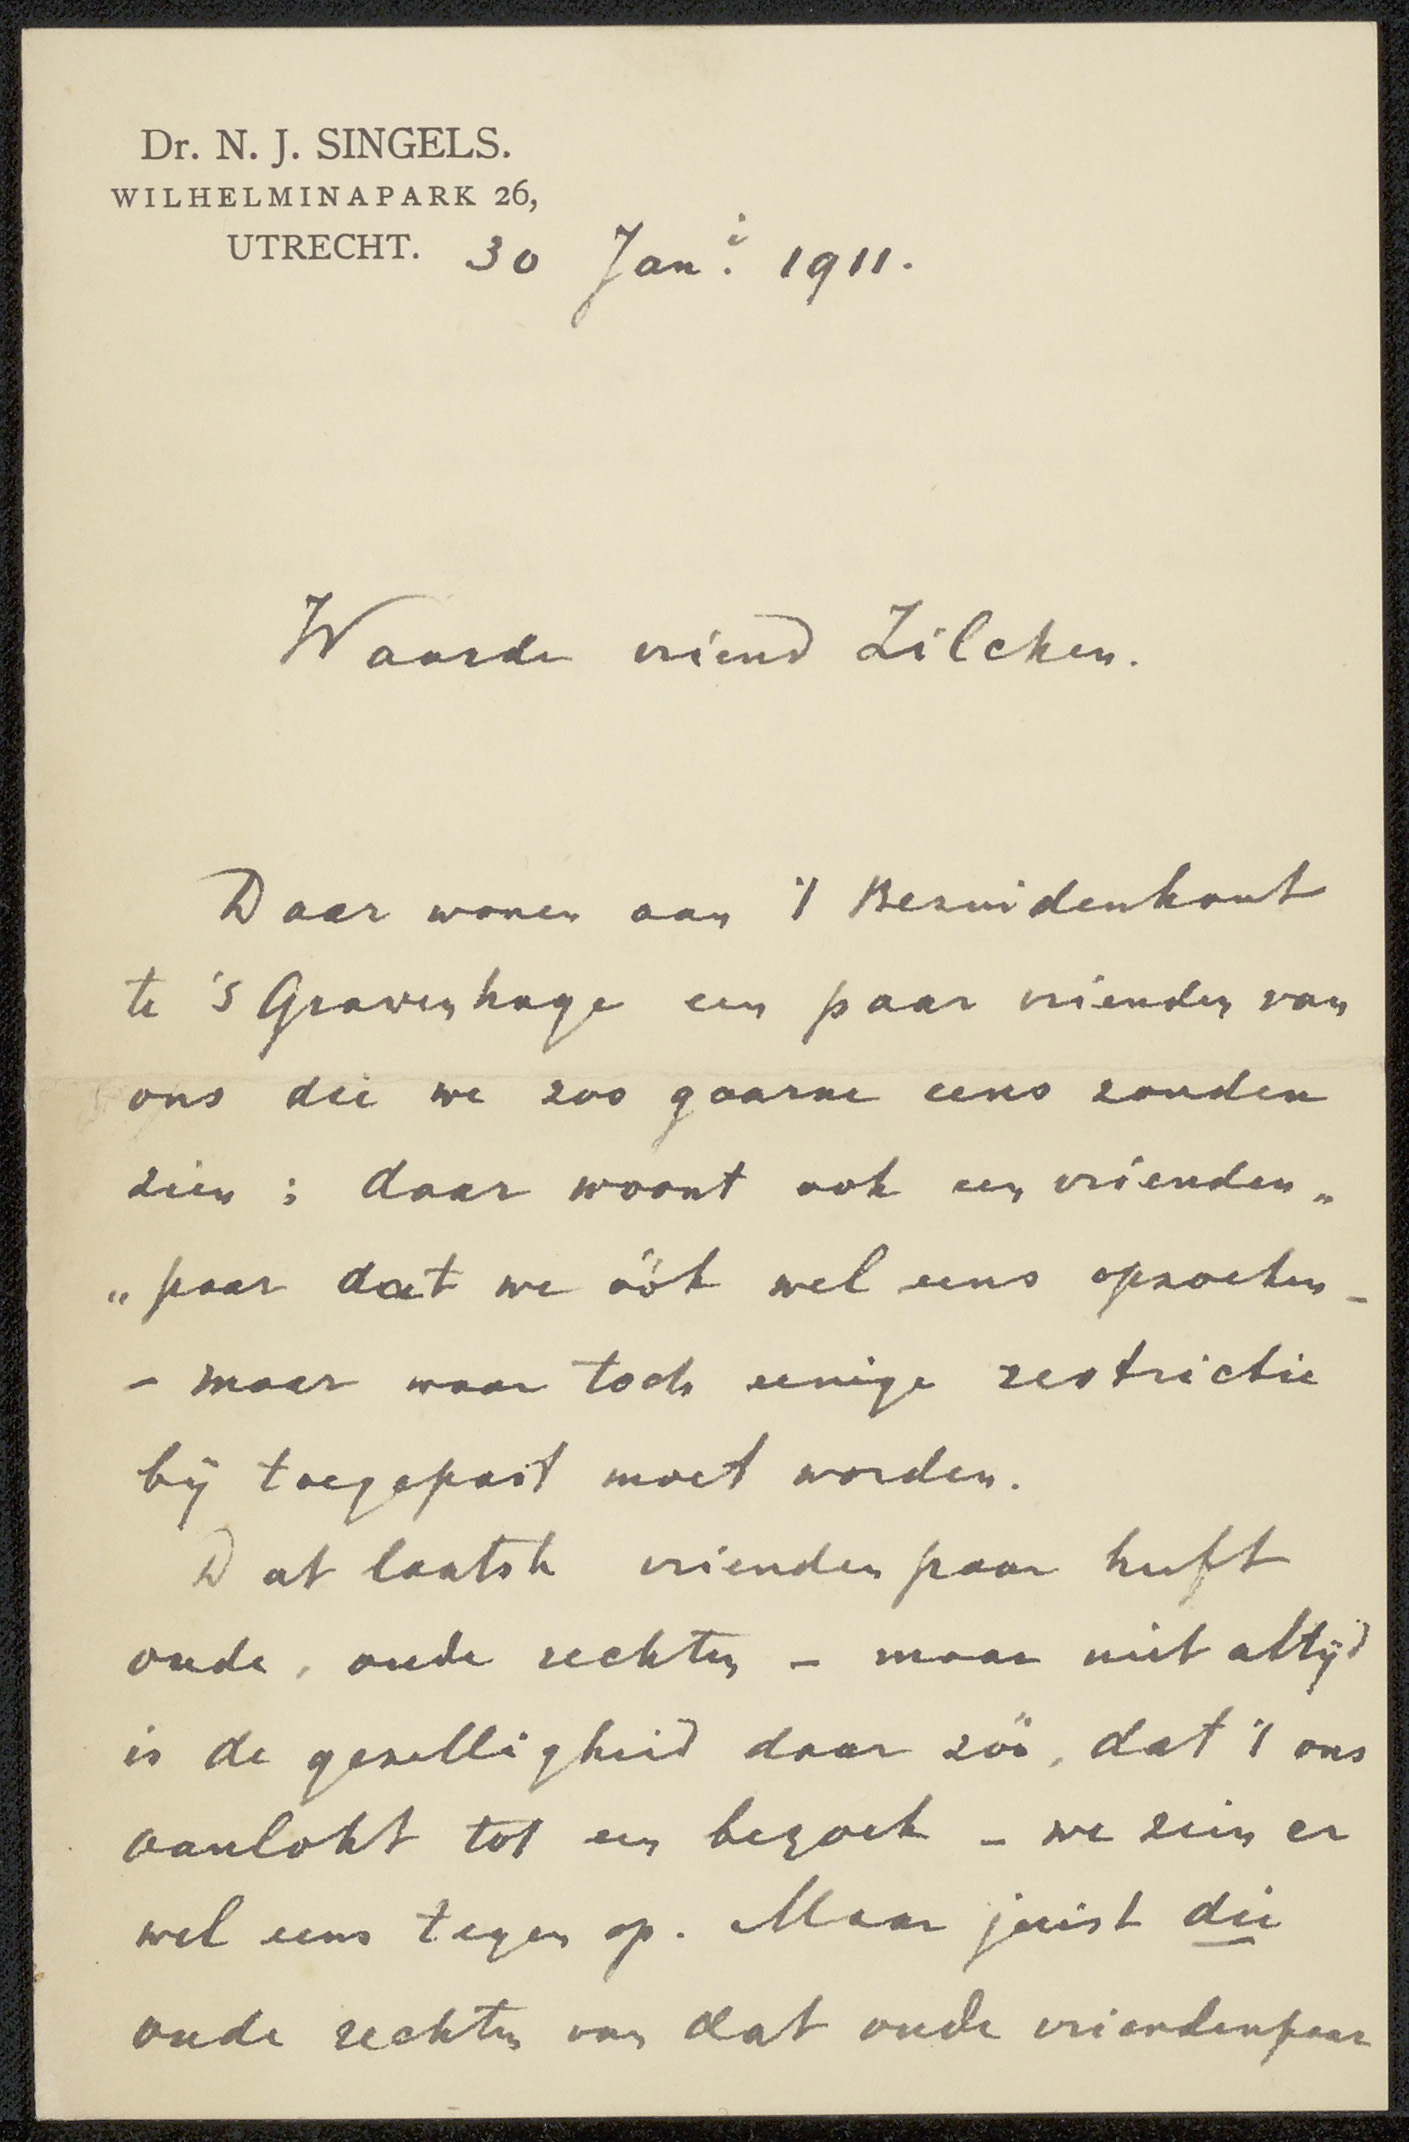 Dr. N. J. SINGELS.
WILHELMINAPARK 26,
UTRECHT. 30 Jan.i 1911.
Waarde vriend Zilcken.
Daar wonen aan 't Bezuidenhout
te 's Gravenhage een paar vrienden van
ons die we zoo gaarne eens zouden
zien ; daar woont ook een vrienden„
„paar dat we óók wel eens opzoeken –
– maar waar toch eenige restrictie
bij toegepast moet worden.
Dat laatste vriendenpaar heeft
oude, oude rechten – maar niet altijd
is de gezelligheid daar zóó, dat 't ons
aanlokt tot een bezoek – we zien er
wel eens tegen op. Maar juist die
oude rechten van dat oude vriendenpaar